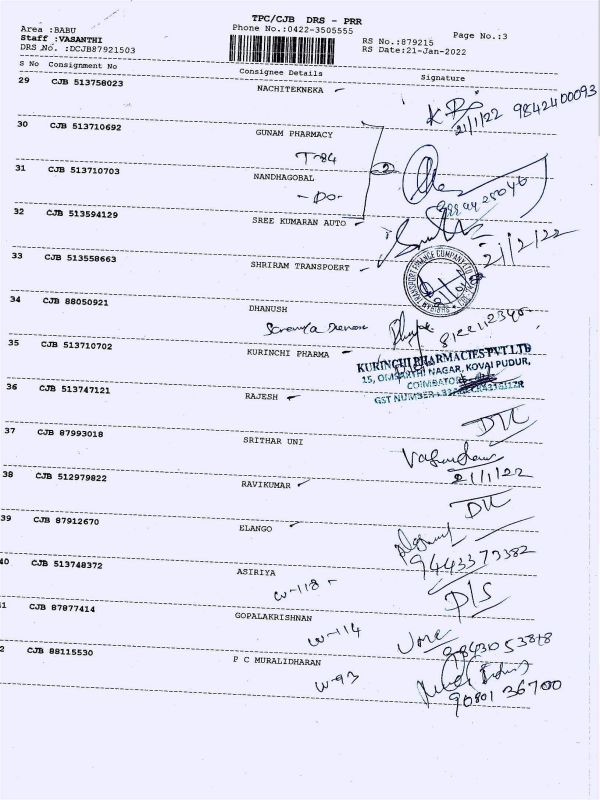 TPC/CJB DRS - PRR
Area :BABU
Phone No.:0422-3505555
Page No.:3
Staff :VASANTHI
RS No.:879215
DRS No. :DCJB87921503
RS Date:21-Jan-2022
S No Consignment No Consignee Details Signature
29 CJB 513758023 NACHITEKNEKA
21/1/22 9842400093
30 CJB 513710692 GUNAM PHARMACY
T-84
31 CJB 513710703 NANDHAGOBAL
-Do-
32 CJB 513594129 SREE KUMARAN AUTO
21/2/22
33 CJB 513558663 SHRIRAM TRANSPOERT
34 CJB 88050921 DHANUSH
35 CJB 513710702 KURINCHI PHARMA
KURINCHI PHARMACIES PVT LTD
15, OM SAKTHI NAGAR, KOVAI PUDUR,
COIMBATORE
GST NUMBER
36 CJB 513747121 RAJESH
37 CJB 87993018 SRITHAR UNI
21/1/22
38 CJB 512979822 RAVIKUMAR
39 CJB 87912670 ELANGO
9443373382
40 CJB 513748372 ASIRIYA
W-118
D/S
1 CJB 87877414 GOPALAKRISHNAN
W-114
9843053878
2 CJB 88115530 P C MURALIDHARAN
W-93
90801 36700